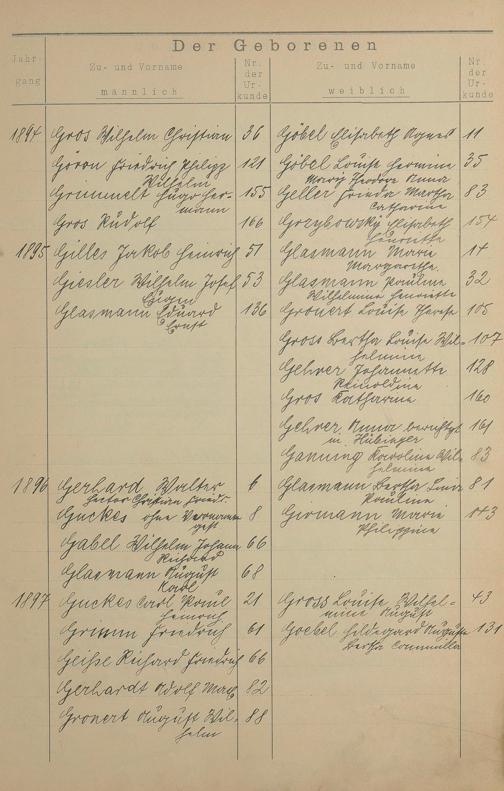 Der Geborenen
Jahrgang
Zu- und Vorname
männlich
Nr. der Urkunde
Zu- und Vorname
weiblich
Nr. der Urkunde
1894 Gros Wilhelm Christian 36 Göbel Elisabeth Agnes 11
Friedrich Philipp 121 Göbel Louise Hermine 35
Wilhelm Marie Theodora Anna
Grummelt Hugo Her- 155 Geller Frieda Martha 83
mann Catharine
Gros Rudolf 166 Grzybowsky Elisabeth 154
Henriette
1895 Gilles Jakob Heinrich 51 Glasmann Marie 14
Margarethe
Giesler Wilhelm Josef 53 Glasmann Pauline 32
Eugen Wilhelmine Henriette
Glasmann Eduard 136 Gronert Louise Therese 105
Ernst
Gross Bertha Louise Wil- 107
helmine
Gehrer Johannette 128
Reinoldine
Gros Katharine 160
Gehrer Anna berichtigt 161
in
Karoline Wil- 83
helmine
1896 Gerhard Walter 6 Glasmann Bertha Luise 81
Hector Christian Friedr. Pauline
Guckes ohne Vornamen 8 Girmann Marie 143
Philippine
Gabel Wilhelm Johann 66
Richard
Glasmann August 68
Karl
1897 Guckes Carl Paul 21 Gross Louise Wilhel- 43
Heinrich mine August
Grimm Friedrich 61 Goebel Hildegard Auguste 131
Bertha
Geisse Richard Friedrich 66
Gerhardt Adolf Max 82
Gronert August Wil- 88
helm